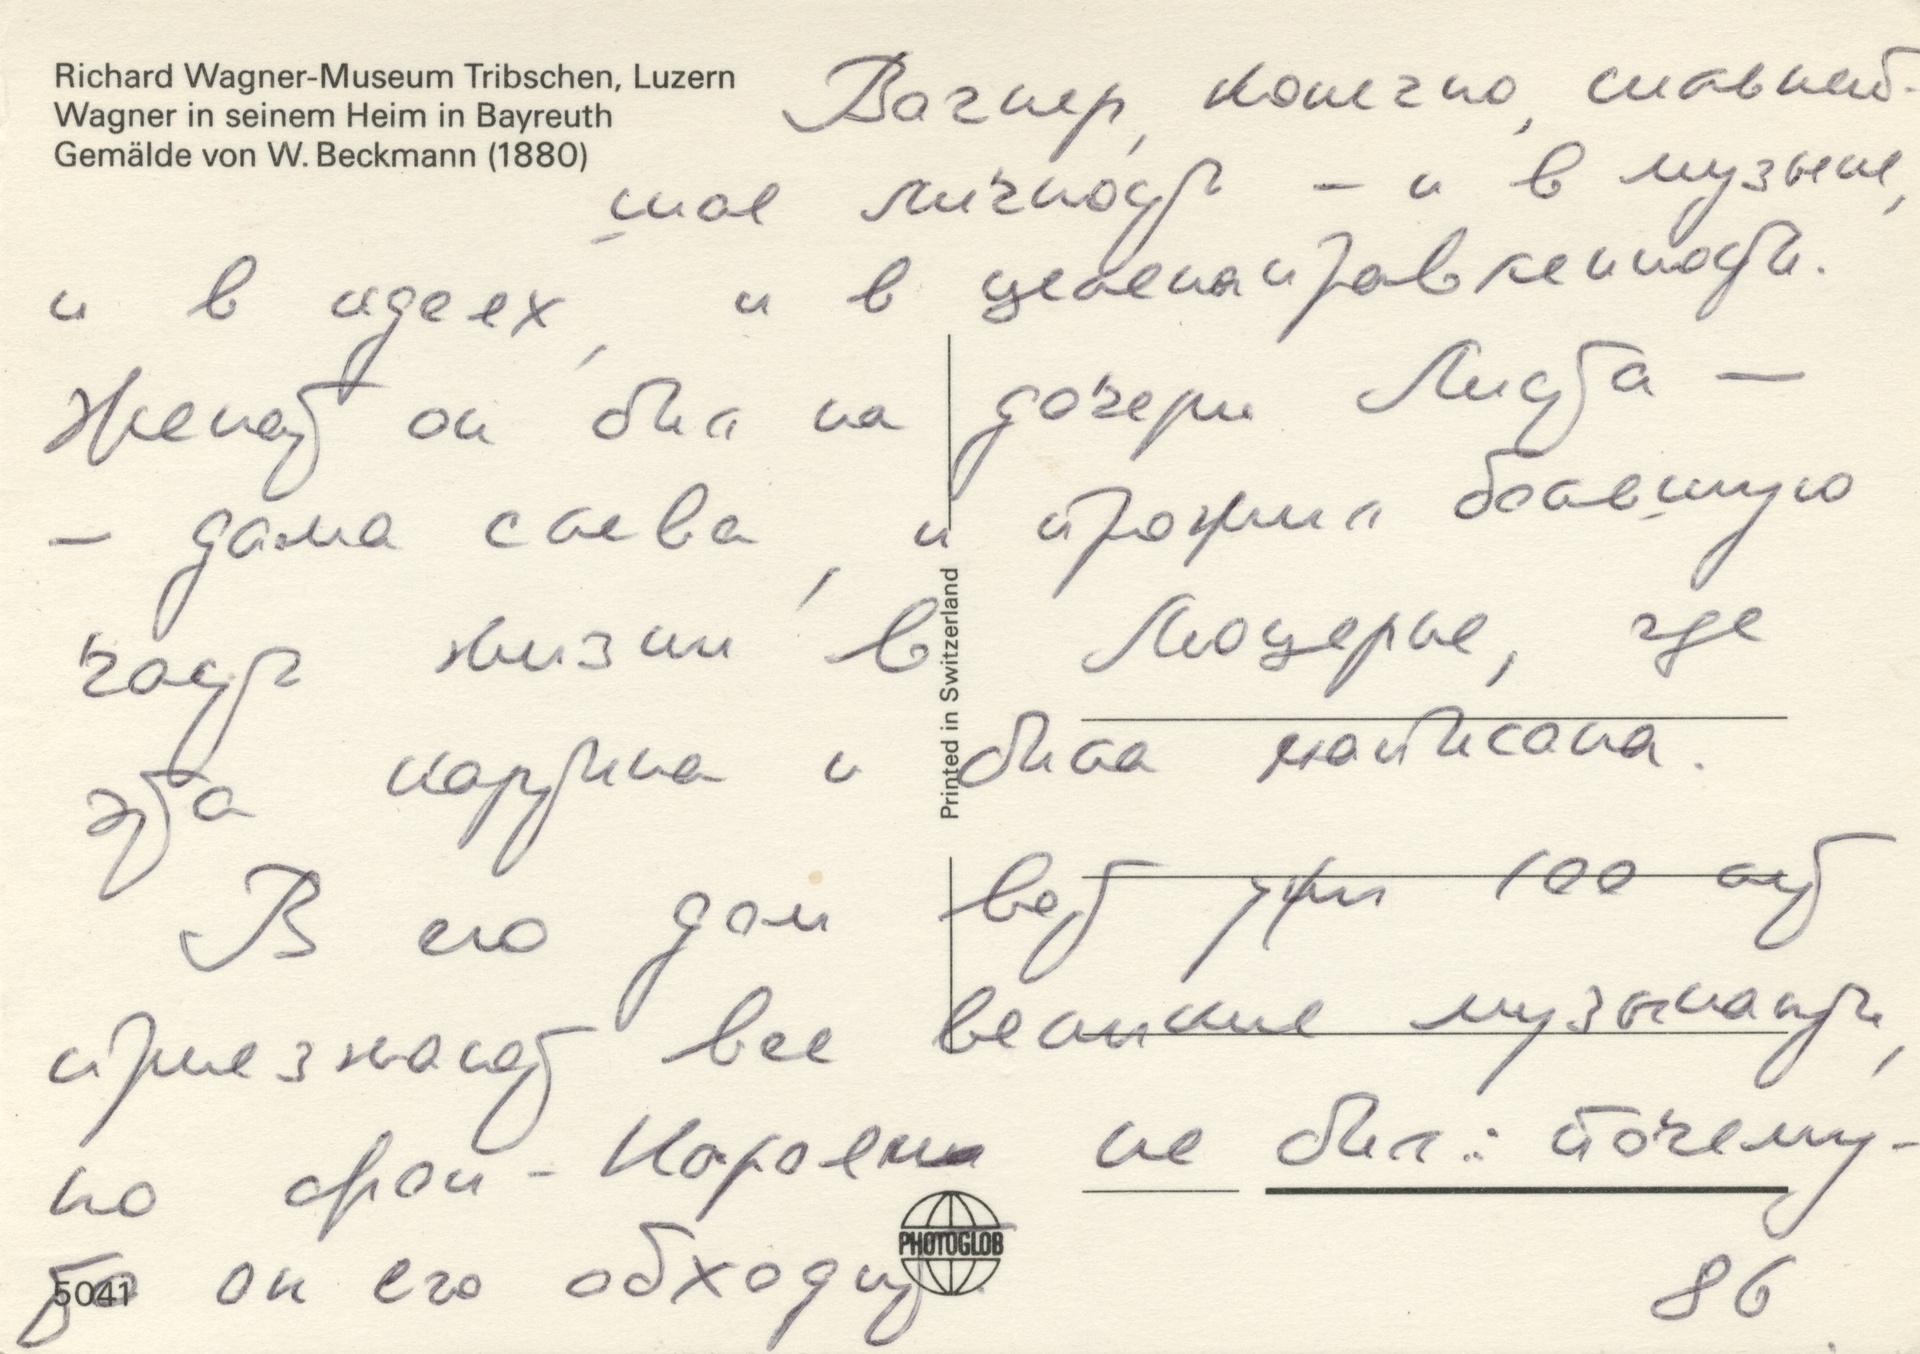 Richard Wagner-Museum Tribschen, Luzern
Wagner in seinem Heim in Bayreuth
Gemälde von W. Beckmann (1880)
Вагнер, конечно, славней-
шая личность – и в музыке,
и в идеях, и в целенаправленности.
Женат он был на дочери Листа –
– дама слева, и прожил большую
часть жизни в Люцерне, где
эта картина и была написана.
В его дом вот уже 100 лет
приезжают все великие музыканты,
но фон-Караян не был: почему-
то он его обходит
86
Printed in Switzerland
PHOTOGLOB
5041